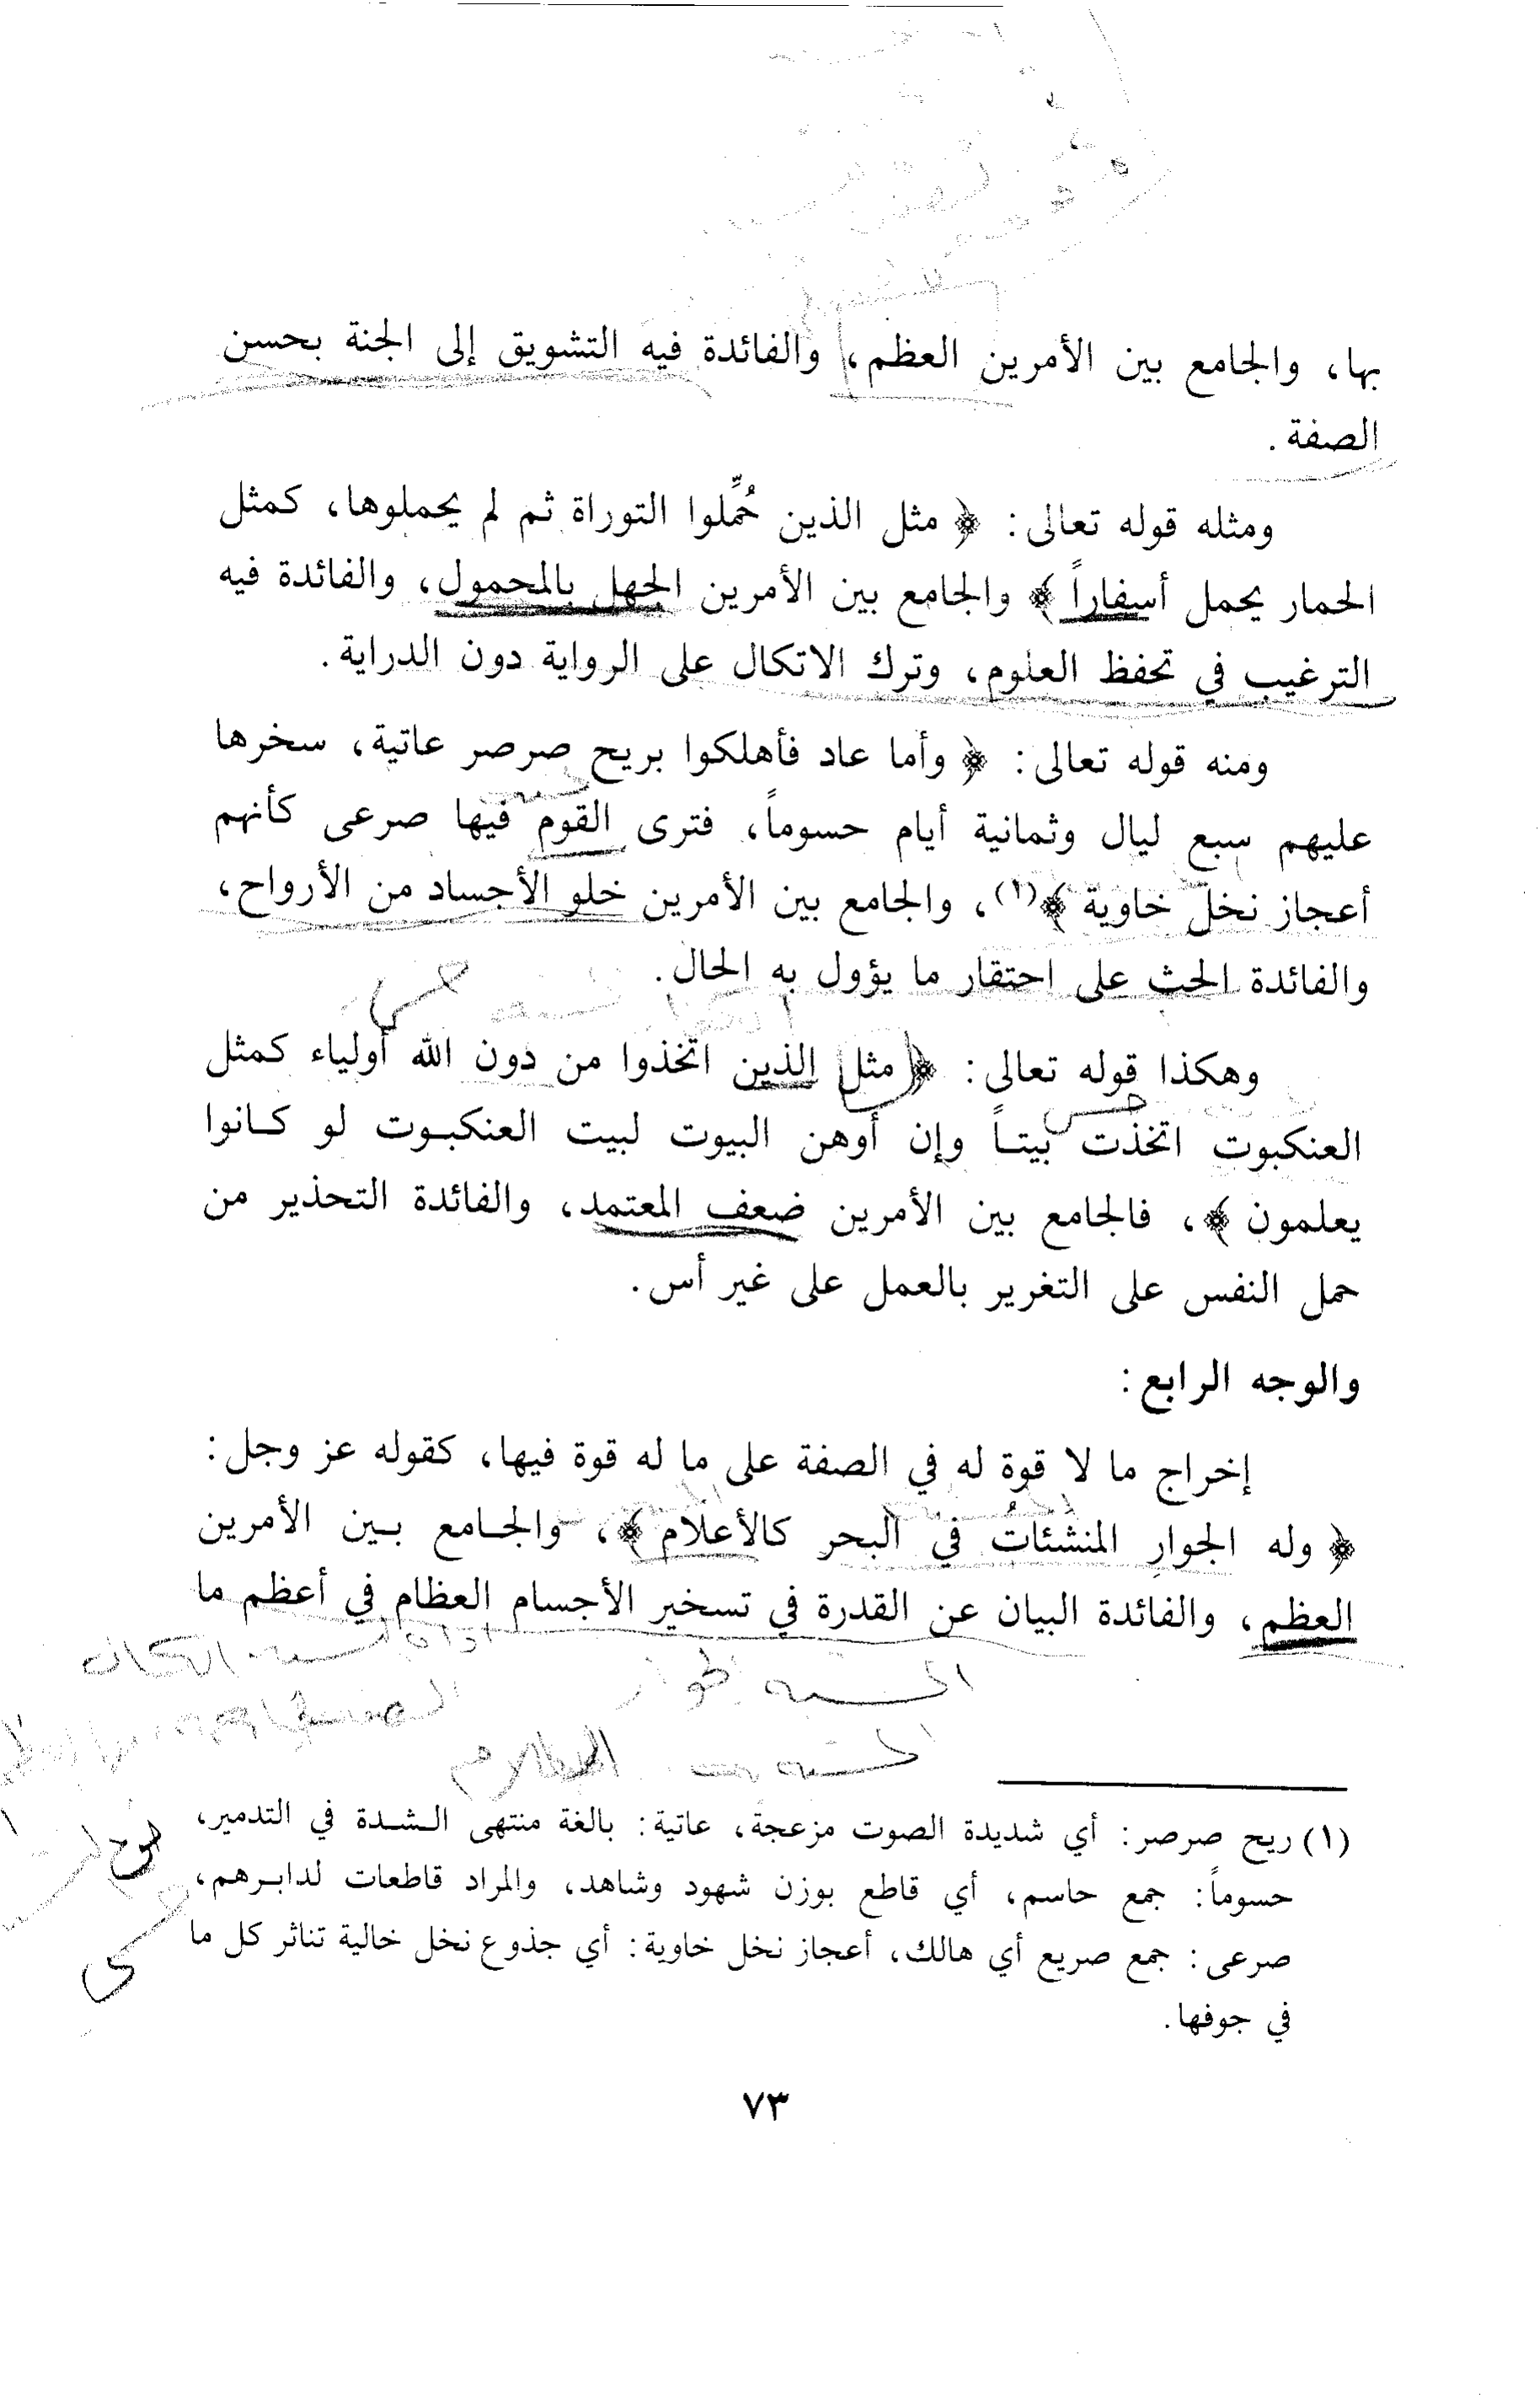 بها، والجامع بين الأمرين العظم، والفائدة فيه التشويق إلى الجنة بحسن
الصفة.
ومثله قوله تعالى: ﴿ مثل الذين حُمِّلوا التوراة ثم لم يحملوها، كمثل
الحمار يحمل أسفاراً ﴾ والجامع بين الأمرين الجهل بالمحمول، والفائدة فيه
الترغيب في تحفظ العلوم، وترك الاتكال على الرواية دون الدراية.
ومنه قوله تعالى: ﴿ وأما عاد فأهلكوا بريح صرصر عاتية، سخرها
عليهم سبع ليال وثمانية أيام حسوماً، فترى القوم فيها صرعى كأنهم
أعجاز نخل خاوية ﴾(١)، والجامع بين الأمرين خلو الأجساد من الأرواح،
والفائدة الحث على احتقار ما يؤول به الحال.
وهكذا قوله تعالى: ﴿ مثل الذين اتخذوا من دون الله أولياء كمثل
العنكبوت اتخذت بيتاً وإن أوهن البيوت لبيت العنكبوت لو كانوا
يعلمون ﴾، فالجامع بين الأمرين ضعف المعتمد، والفائدة التحذير من
حمل النفس على التغرير بالعمل على غير أس.
والوجه الرابع:
إخراج ما لا قوة له في الصفة على ما له قوة فيها، كقوله عز وجل:
﴿ وله الجوارِ المنشئاتُ في البحر كالأعلام ﴾، والجامع بين الأمرين
العظم، والفائدة البيان عن القدرة في تسخير الأجسام العظام في أعظم ما
(١) ريح صرصر: أي شديدة الصوت مزعجة، عاتية: بالغة منتهى الشدة في التدمير،
حسوماً: جمع حاسم، أي قاطع بوزن شهود وشاهد، والمراد قاطعات لدابرهم،
صرعى: جمع صريع أي هالك، أعجاز نخل خاوية: أي جذوع نخل خالية تناثر كل ما
في جوفها.
٧٣